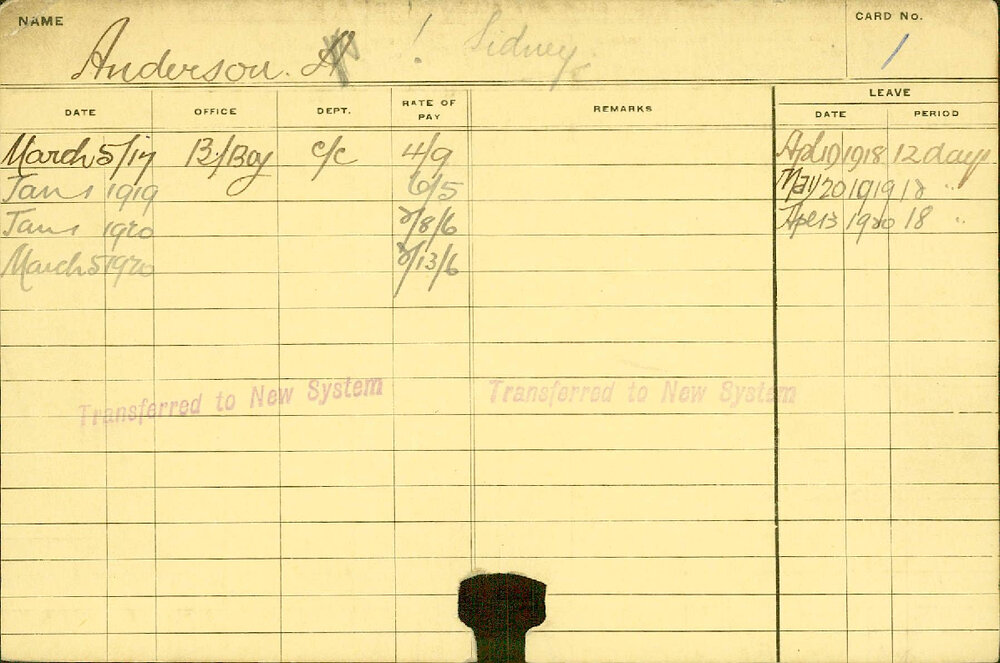 NAME
CARD No.
Anderson. ! Sidney.
1
DATE OFFICE DEPT. RATE OF PAY REMARKS LEAVE
DATE PERIOD
March 5/17 B/Boy c/c 4/9 1918 12 days
Jan 1 1919 6/5 May 20 1919 18 "
Jan 1 1920 /8/6 Apl 13 1920 18 "
March 5 1920 /13/6
Transferred to New System Transferred to New System